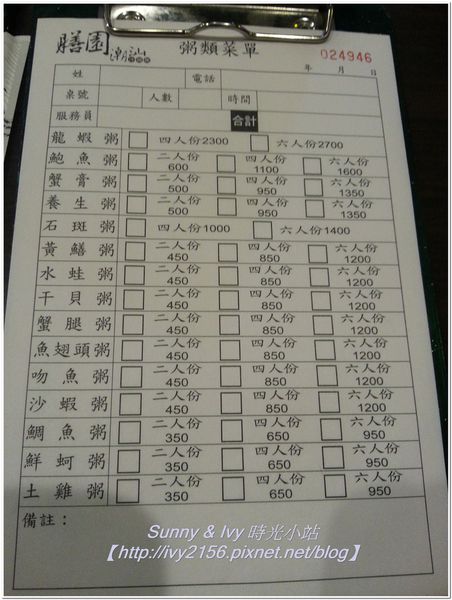 膳園 潮汕 粥類菜單 024946
年 月 日
姓 電話
桌號 人數 時間
服務員 合計
龍蝦粥 四人份2300 六人份2700
鮑魚粥 二人份600 四人份1100 六人份1600
蟹膏粥 二人份500 四人份950 六人份1350
養生粥 二人份500 四人份950 六人份1350
石斑粥 四人份1000 六人份1400
黃鱔粥 二人份450 四人份850 六人份1200
水蛙粥 二人份450 四人份850 六人份1200
干貝粥 二人份450 四人份850 六人份1200
蟹腿粥 二人份450 四人份850 六人份1200
魚翅頭粥 二人份450 四人份850 六人份1200
吻魚粥 二人份450 四人份850 六人份1200
沙蝦粥 二人份450 四人份850 六人份1200
鯛魚粥 二人份350 四人份650 六人份950
鮮蚵粥 二人份350 四人份650 六人份950
土雞粥 二人份350 四人份650 六人份950
備註：
Sunny & Ivy 時光小站
【http://ivy2156.pixnet.net/blog】